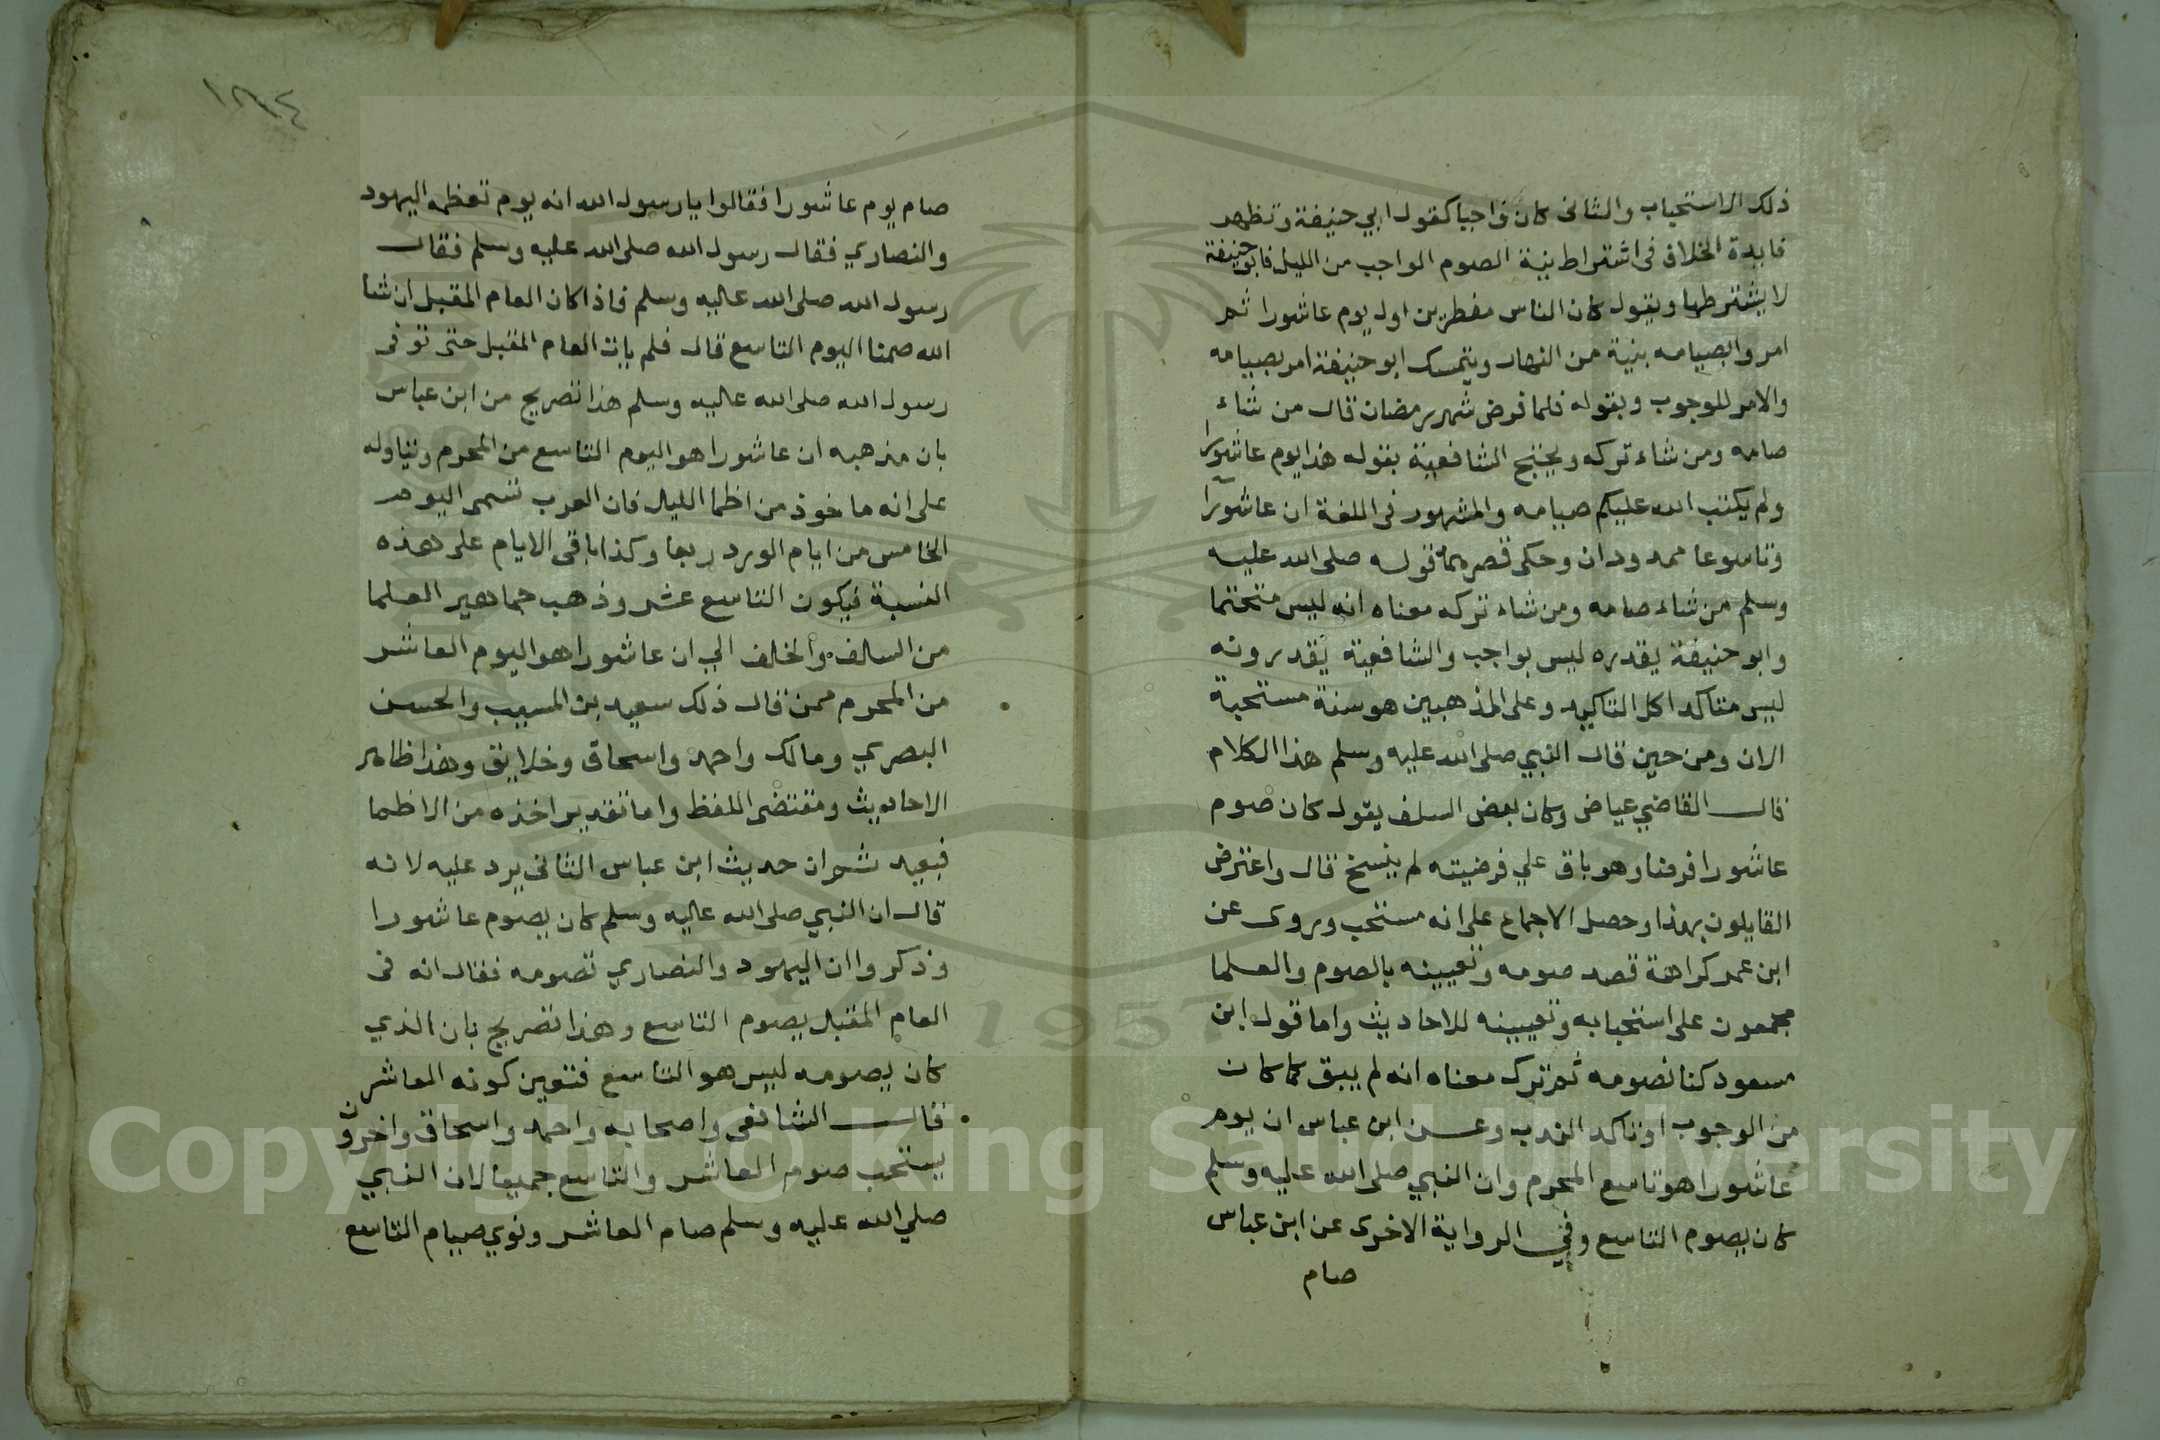 ذلك الاستحباب والثاني كان واجبا كقول ابي حنيفة وتظهر
فايدة الخلاف في اشتراط نية الصوم الواجب من الليل فابو حنيفة
لا يشترطها ويقول كان الناس مفطرين اول يوم عاشورا ثم
امروا بصيامه بنية من النهار ويتمسك ابو حنيفة امر بصيامه
والامر للوجوب وبقوله فلما فرض شهر رمضان قال من شاء
صامه ومن شاء تركه ويحتج الشافعية بقوله هذا يوم عاشورا
ولم يكتب الله عليكم صيامه والمشهور في اللغة ان عاشورآ
وتاسوعا ممدودان وحكى قصرهما قوله صلى الله عليه
وسلم من شاء صامه ومن شاء تركه معناه انه ليس متحتما
وابو حنيفة يقدره ليس بواجب والشافعية يقدرونه
ليس متاكدا كل التاكيد وعلى المذهبين هو سنة مستحبة
الان ومن حين قال النبي صلى الله عليه وسلم هذا الكلام
قال القاضي عياض وكان بعض السلف يقول كان صوم
عاشورا فرضا وهو باق علي فرضيته لم ينسخ قال واعترض
القايلون بهذا وحصل الاجماع على انه مستحب وروى عن
ابن عمر كراهة قصد صومه وتعيينه بالصوم والعلما
مجمعون على استحبابه وتعيينه للاحاديث واما قول ابن
مسعود كنا نصومه ثم ترك معناه انه لم يبق كما كان
من الوجوب او تاكد الندب وعن ابن عباس ان يوم
عاشورا هو تاسع المحرم وان النبي صلى الله عليه وسلم
كان يصوم التاسع وفي الرواية الاخرى عن ابن عباس
صام
١٨٤
صام يوم عاشورا فقالوا يا رسول الله انه يوم تعظمه اليهود
والنصاري فقال رسول الله صلى الله عليه وسلم فقال
رسول الله صلى الله عليه وسلم فاذا كان العام المقبل ان شا
الله صمنا اليوم التاسع قال فلم يات العام المقبل حتى توفى
رسول الله صلى الله عليه وسلم هذا تصريح من ابن عباس
بان مذهبه ان عاشورا هو اليوم التاسع من المحرم ويتاوله
على انه ماخوذ من اظما الليل فان العرب تسمى اليوم
الخامس من ايام الورد ربعا وكذا باقى الايام على هذه
النسبة فيكون التاسع عشر وذهب جماهير العلما
من السلف والخلف الي ان عاشورا هو اليوم العاشر
من المحرم ممن قال ذلك سعيد بن المسيب والحسن
البصري ومالك واحمد واسحاق وخلايق وهذا ظاهر
الاحاديث ومقتضى اللفظ واما تقدير اخذه من الاظما
فبعيد ثم ان حديث ابن عباس الثانى يرد عليه لانه
قال ان النبي صلى الله عليه وسلم كان يصوم عاشورا
وذكروا ان اليهود والنصاري تصومه فقال انه فى
العام المقبل يصوم التاسع وهذا تصريح بان الذي
كان يصومه ليس هو التاسع فتعين كونه العاشر
قال الشافعى واصحابه واحمد واسحاق واخرون
يستحب صوم العاشر والتاسع جميعا لان النبي
صلي الله عليه وسلم صام العاشر ونوي صيام التاسع
1957
Copyright © King Saud University